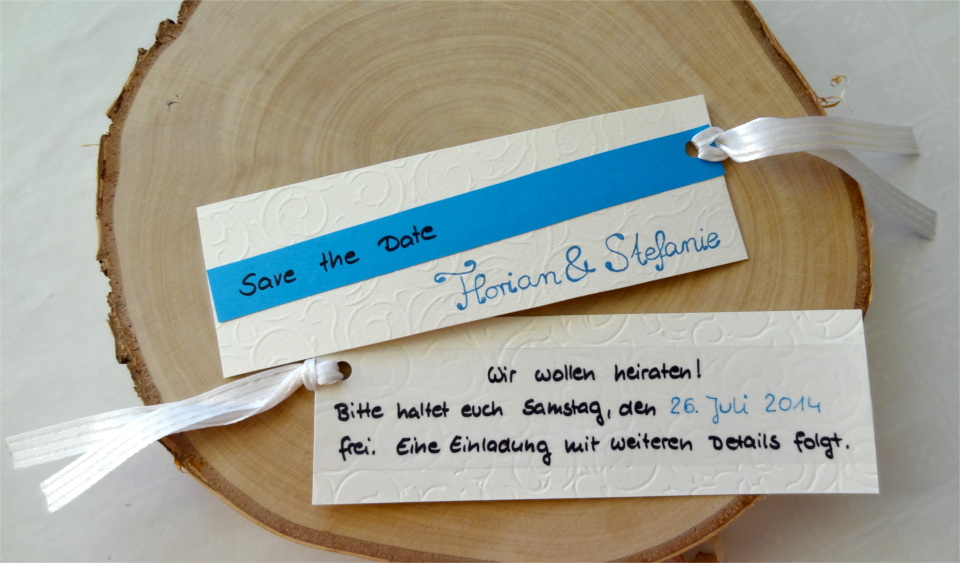 Save the Date
Florian & Stefanie
Wir wollen heiraten!
Bitte haltet euch Samstag, den 26. Juli 2014
frei. Eine Einladung mit weiteren Details folgt.